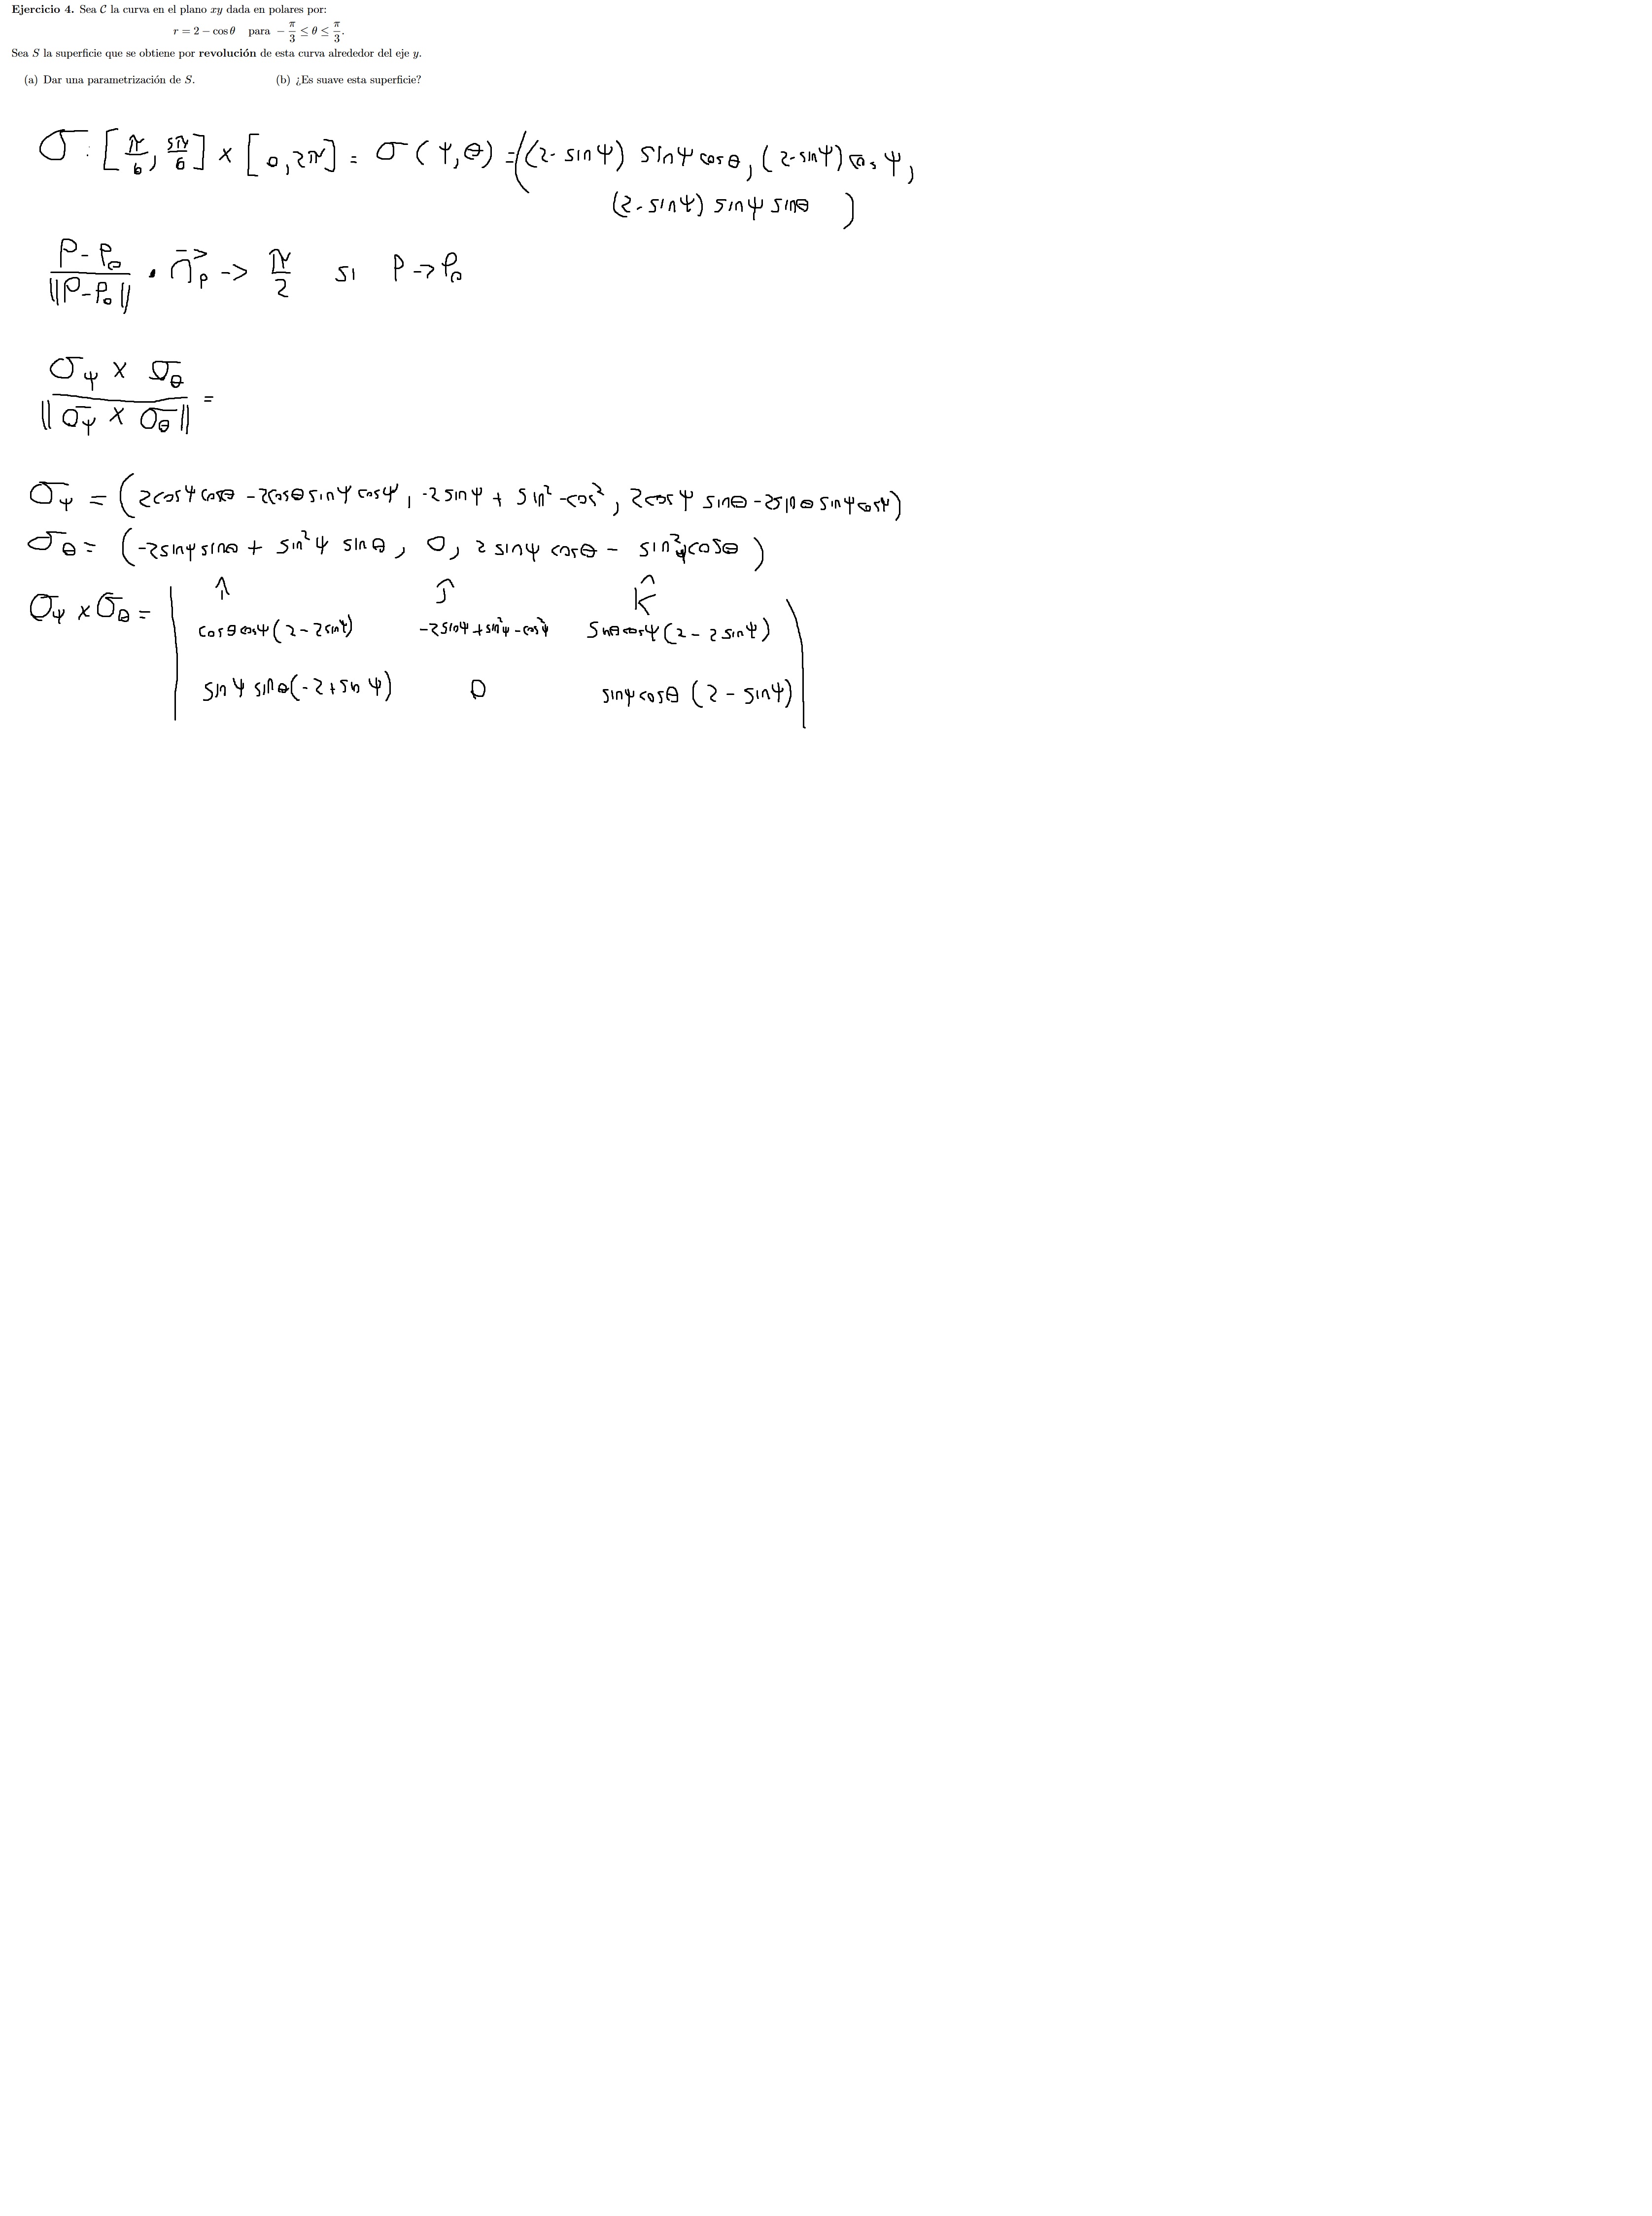 Ejercicio 4. Sea C la curva en el plano xy dada en polares por:
r = 2 − cos θ para −π/3 ≤ θ ≤ π/3.
Sea S la superficie que se obtiene por revolución de esta curva alrededor del eje y.
(a) Dar una parametrización de S. (b) ¿Es suave esta superficie?
σ: [π/6, 5π/6] × [0, 2π] = σ(ψ, θ) = ((2 - sin ψ) sin ψ cos θ, (2 - sin ψ) cos ψ,
(2 - sin ψ) sin ψ sin θ)
(P - P₀)/||P - P₀|| · n⃗ₚ -> π/2 si P -> P₀
(σψ × σθ)/||σψ × σθ|| =
σψ = (2 cos ψ cos θ - 2 cos θ sin ψ cos ψ, -2 sin ψ + sin² - cos², 2 cos ψ sin θ - 2 sin θ sin ψ cos ψ)
σθ = (-2 sin ψ sin θ + sin² ψ sin θ, 0, 2 sin ψ cos θ - sin² ψ cos θ)
î ĵ k̂
σψ × σθ = | cos θ cos ψ (2 - 2 sin ψ) -2 sin ψ + sin² ψ - cos² ψ sin θ cos ψ (2 - 2 sin ψ) |
sin ψ sin θ (-2 + sin ψ) 0 sin ψ cos θ (2 - sin ψ)